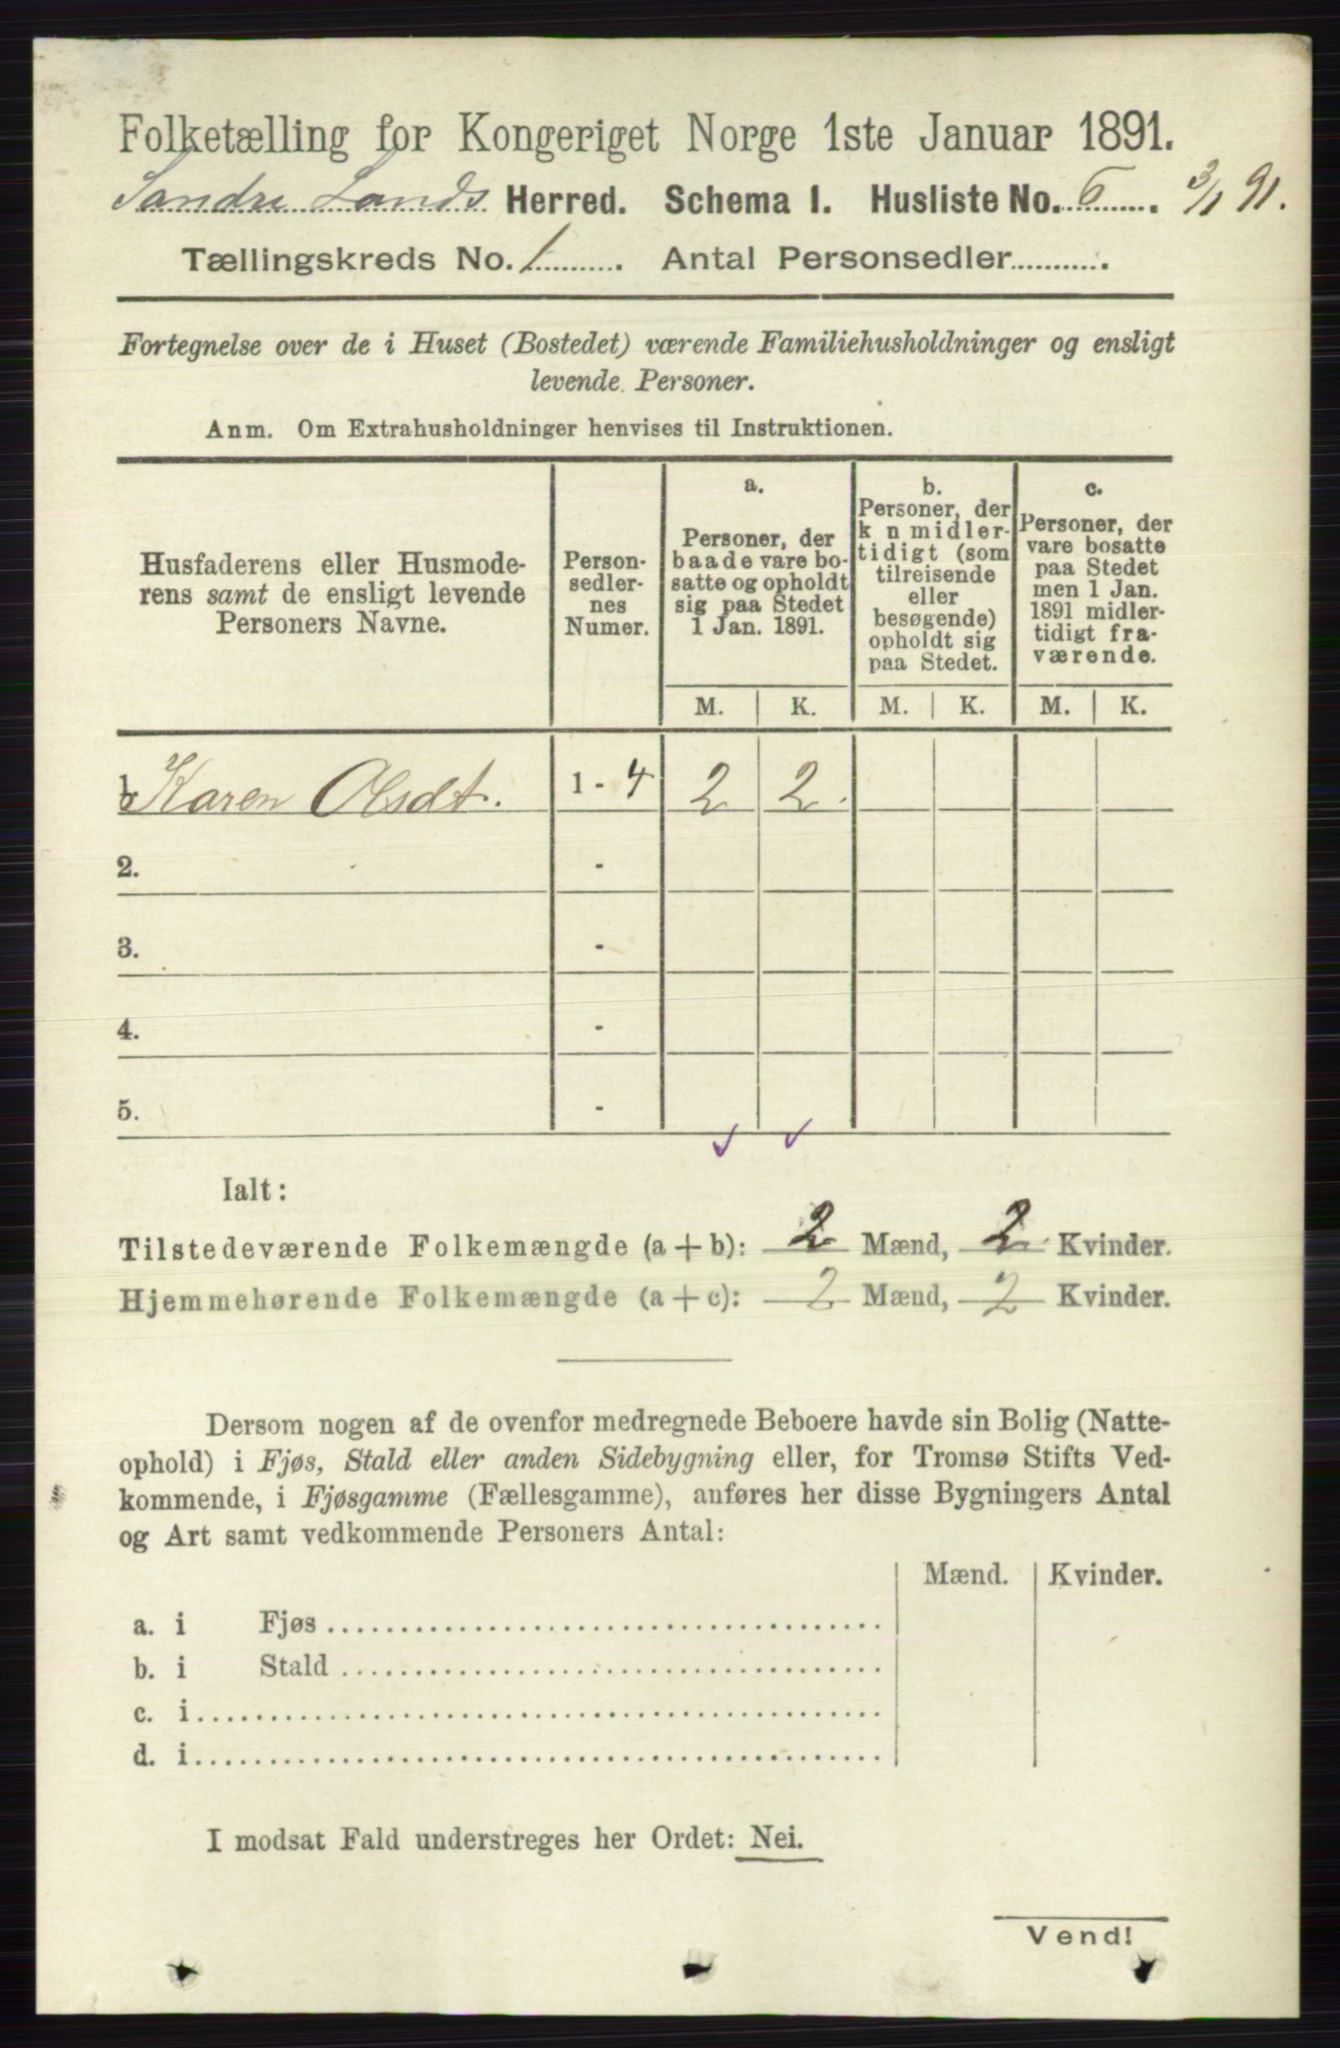 Folketælling for Kongeriget Norge 1ste Januar 1891.
Søndre Lands Herred. Schema 1. Husliste No. 6. 3/1 91.
Tællingskreds No. 1. Antal Personsedler.
Fortegnelse over de i Huset (Bostedet) værende Familiehusholdninger og ensligt
levende Personer.
Anm. Om Extrahusholdninger henvises til Instruktionen.
Husfaderens eller Husmode-
rens samt de ensligt levende
Personers Navne.
Person-
sedler-
nes
Numer.
a.
Personer, der
baade vare bo-
satte og opholdt
sig paa Stedet
1 Jan. 1891.
b.
Personer, der
k n midler-
tidigt (som
tilreisende
eller
besøgende)
opholdt sig
paa Stedet.
c.
Personer, der
vare bosatte
paa Stedet
men 1 Jan.
1891 midler-
tidigt fra-
værende.
M. K. M. K. M. K.
1. Karen Olsdt. 1 - 4 2 2.
2. -
3. -
4. -
5. -
Ialt:
Tilstedeværende Folkemængde (a + b): 2 Mænd, 2 Kvinder.
Hjemmehørende Folkemængde (a + c): 2 Mænd, 2 Kvinder.
Dersom nogen af de ovenfor medregnede Beboere havde sin Bolig (Natte-
ophold) i Fjøs, Stald eller anden Sidebygning eller, for Tromsø Stifts Ved-
kommende, i Fjøsgamme (Fællesgamme), anføres her disse Bygningers Antal
og Art samt vedkommende Personers Antal:
Mænd. Kvinder.
a. i Fjøs
b. i Stald
c. i
d. i
I modsat Fald understreges her Ordet: Nei.
Vend!